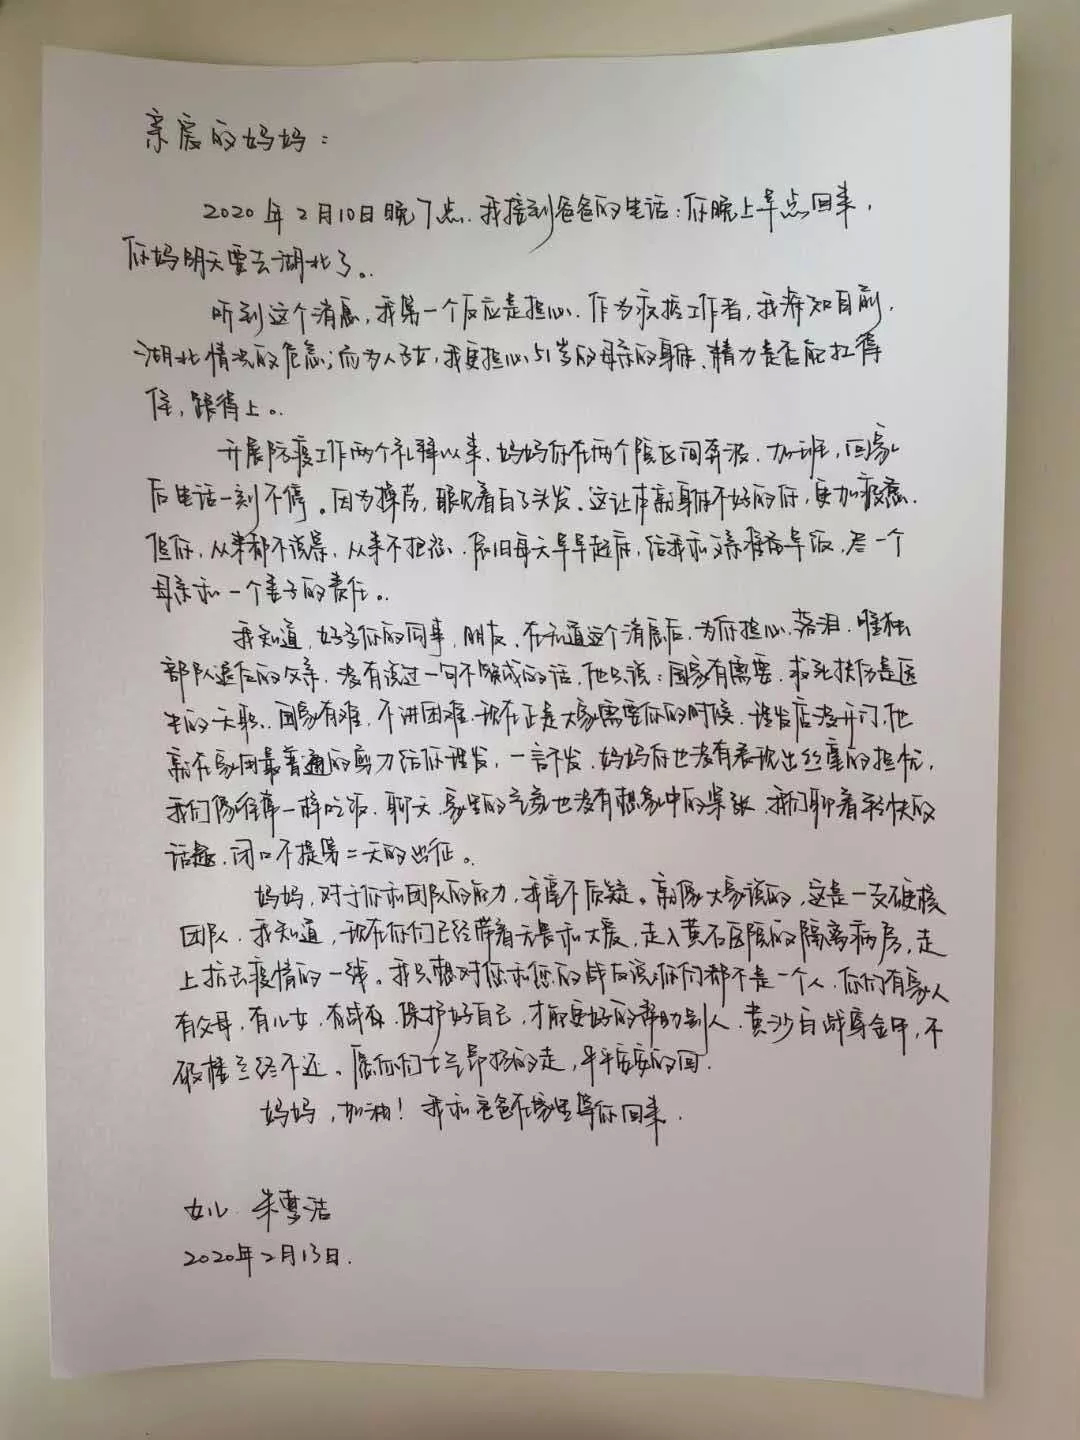 亲爱的妈妈：
2020年2月10日晚7点.我接到爸爸的电话：你晚上早点回来，
你妈明天要去湖北了。
听到这个消息，我第一个反应是担心.作为疾控工作者，我深知目前，
湖北情况的危急；而为人子女，我更担心51岁的母亲的身体、精力是否能扛得
住，跟得上。
开展防疫工作两个礼拜以来，妈妈你在两个院区间奔波、加班，回家
后电话一刻不停。因为操劳，眼见着白了头发。这让本就身体不好的你，更加疲惫.
但你，从来都不说累，从来不抱怨.依旧每天早早起床，给我和父亲准备早饭，尽一个
母亲和一个妻子的责任。
我知道，好多你的同事，朋友，在知道这个消息后，为你担心、落泪.唯独
部队退伍的父亲，没有说过一句不赞成的话.他只说：国家有需要.救死扶伤是医
生的天职.国家有难，不讲困难.现在正是大家需要你的时候.理发店没开门，他
就在家用最普通的剪刀给你理发，一言不发.妈妈你也没有表现出丝毫的担忧，
我们像往常一样吃饭、聊天.家里的气氛也没有想象中的紧张.我们聊着轻快的
话题，闭口不提第二天的出征。
妈妈，对于你和团队的能力，我毫不质疑。就像大家说的，这是一支硬核
团队.我知道，现在你们已经带着无畏和大爱，走入黄石医院的隔离病房，走
上抗击疫情的一线。我只想对您和您的战友说：你们都不是一个人.你们有家人
有父母，有儿女，有战友.保护好自己，才能更好的帮助别人.黄沙百战穿金甲，不
破楼兰终不还。愿你们士气昂扬的走，平平安安的回.
妈妈，加油！我和爸爸在家里等你回来.
女儿 朱 洁
2020年2月13日.